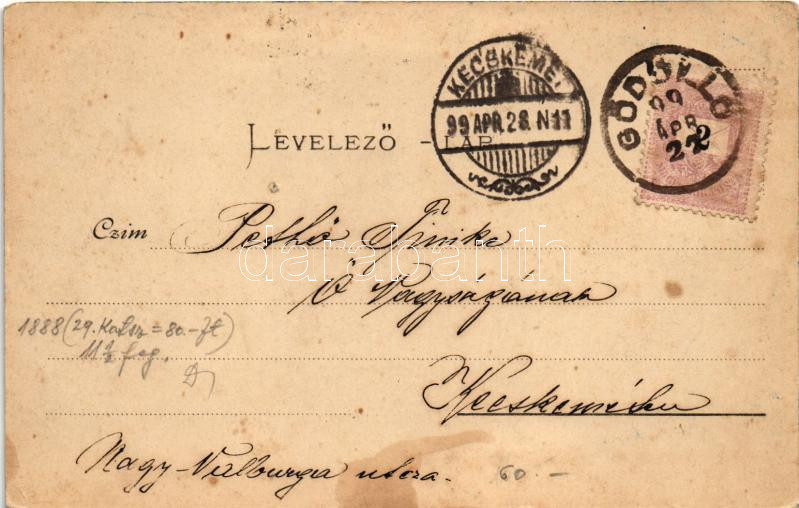 KECSKEMÉT
99 APR. 28. N11
GÖDÖLLŐ
99
APR
27
2
LEVELEZŐ - LAP.
Czim Pethő Tinike
Ő Nagyságának
darabanth
1888 (29. = 80.- Ft)
11 1/2 fog.
Kecskeméten
Nagy-Valburga utcza.
60.-